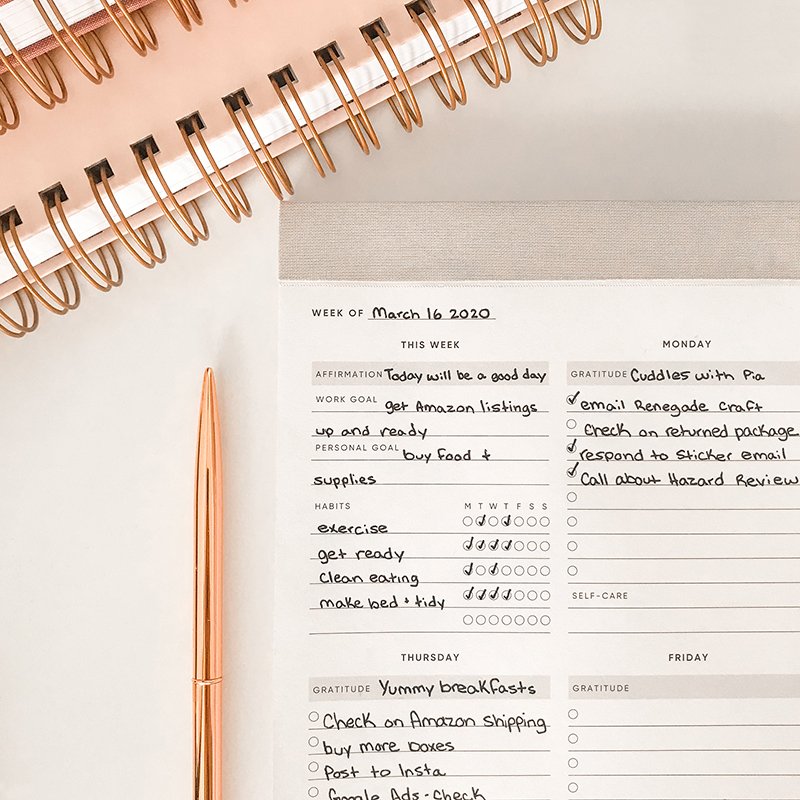 WEEK OF March 16 2020
THIS WEEK
AFFIRMATION Today will be a good day
WORK GOAL get Amazon listings
up and ready
PERSONAL GOAL buy food +
supplies
HABITS M T W T F S S
exercise
get ready
Clean eating
make bed + tidy
MONDAY
GRATITUDE Cuddles with Pia
email Renegade Craft
Check on returned package
respond to Sticker email
Call about Hazard Review
SELF-CARE
THURSDAY
GRATITUDE Yummy breakfasts
Check on Amazon shipping
buy more boxes
Post to Insta
Google Ads - check
FRIDAY
GRATITUDE